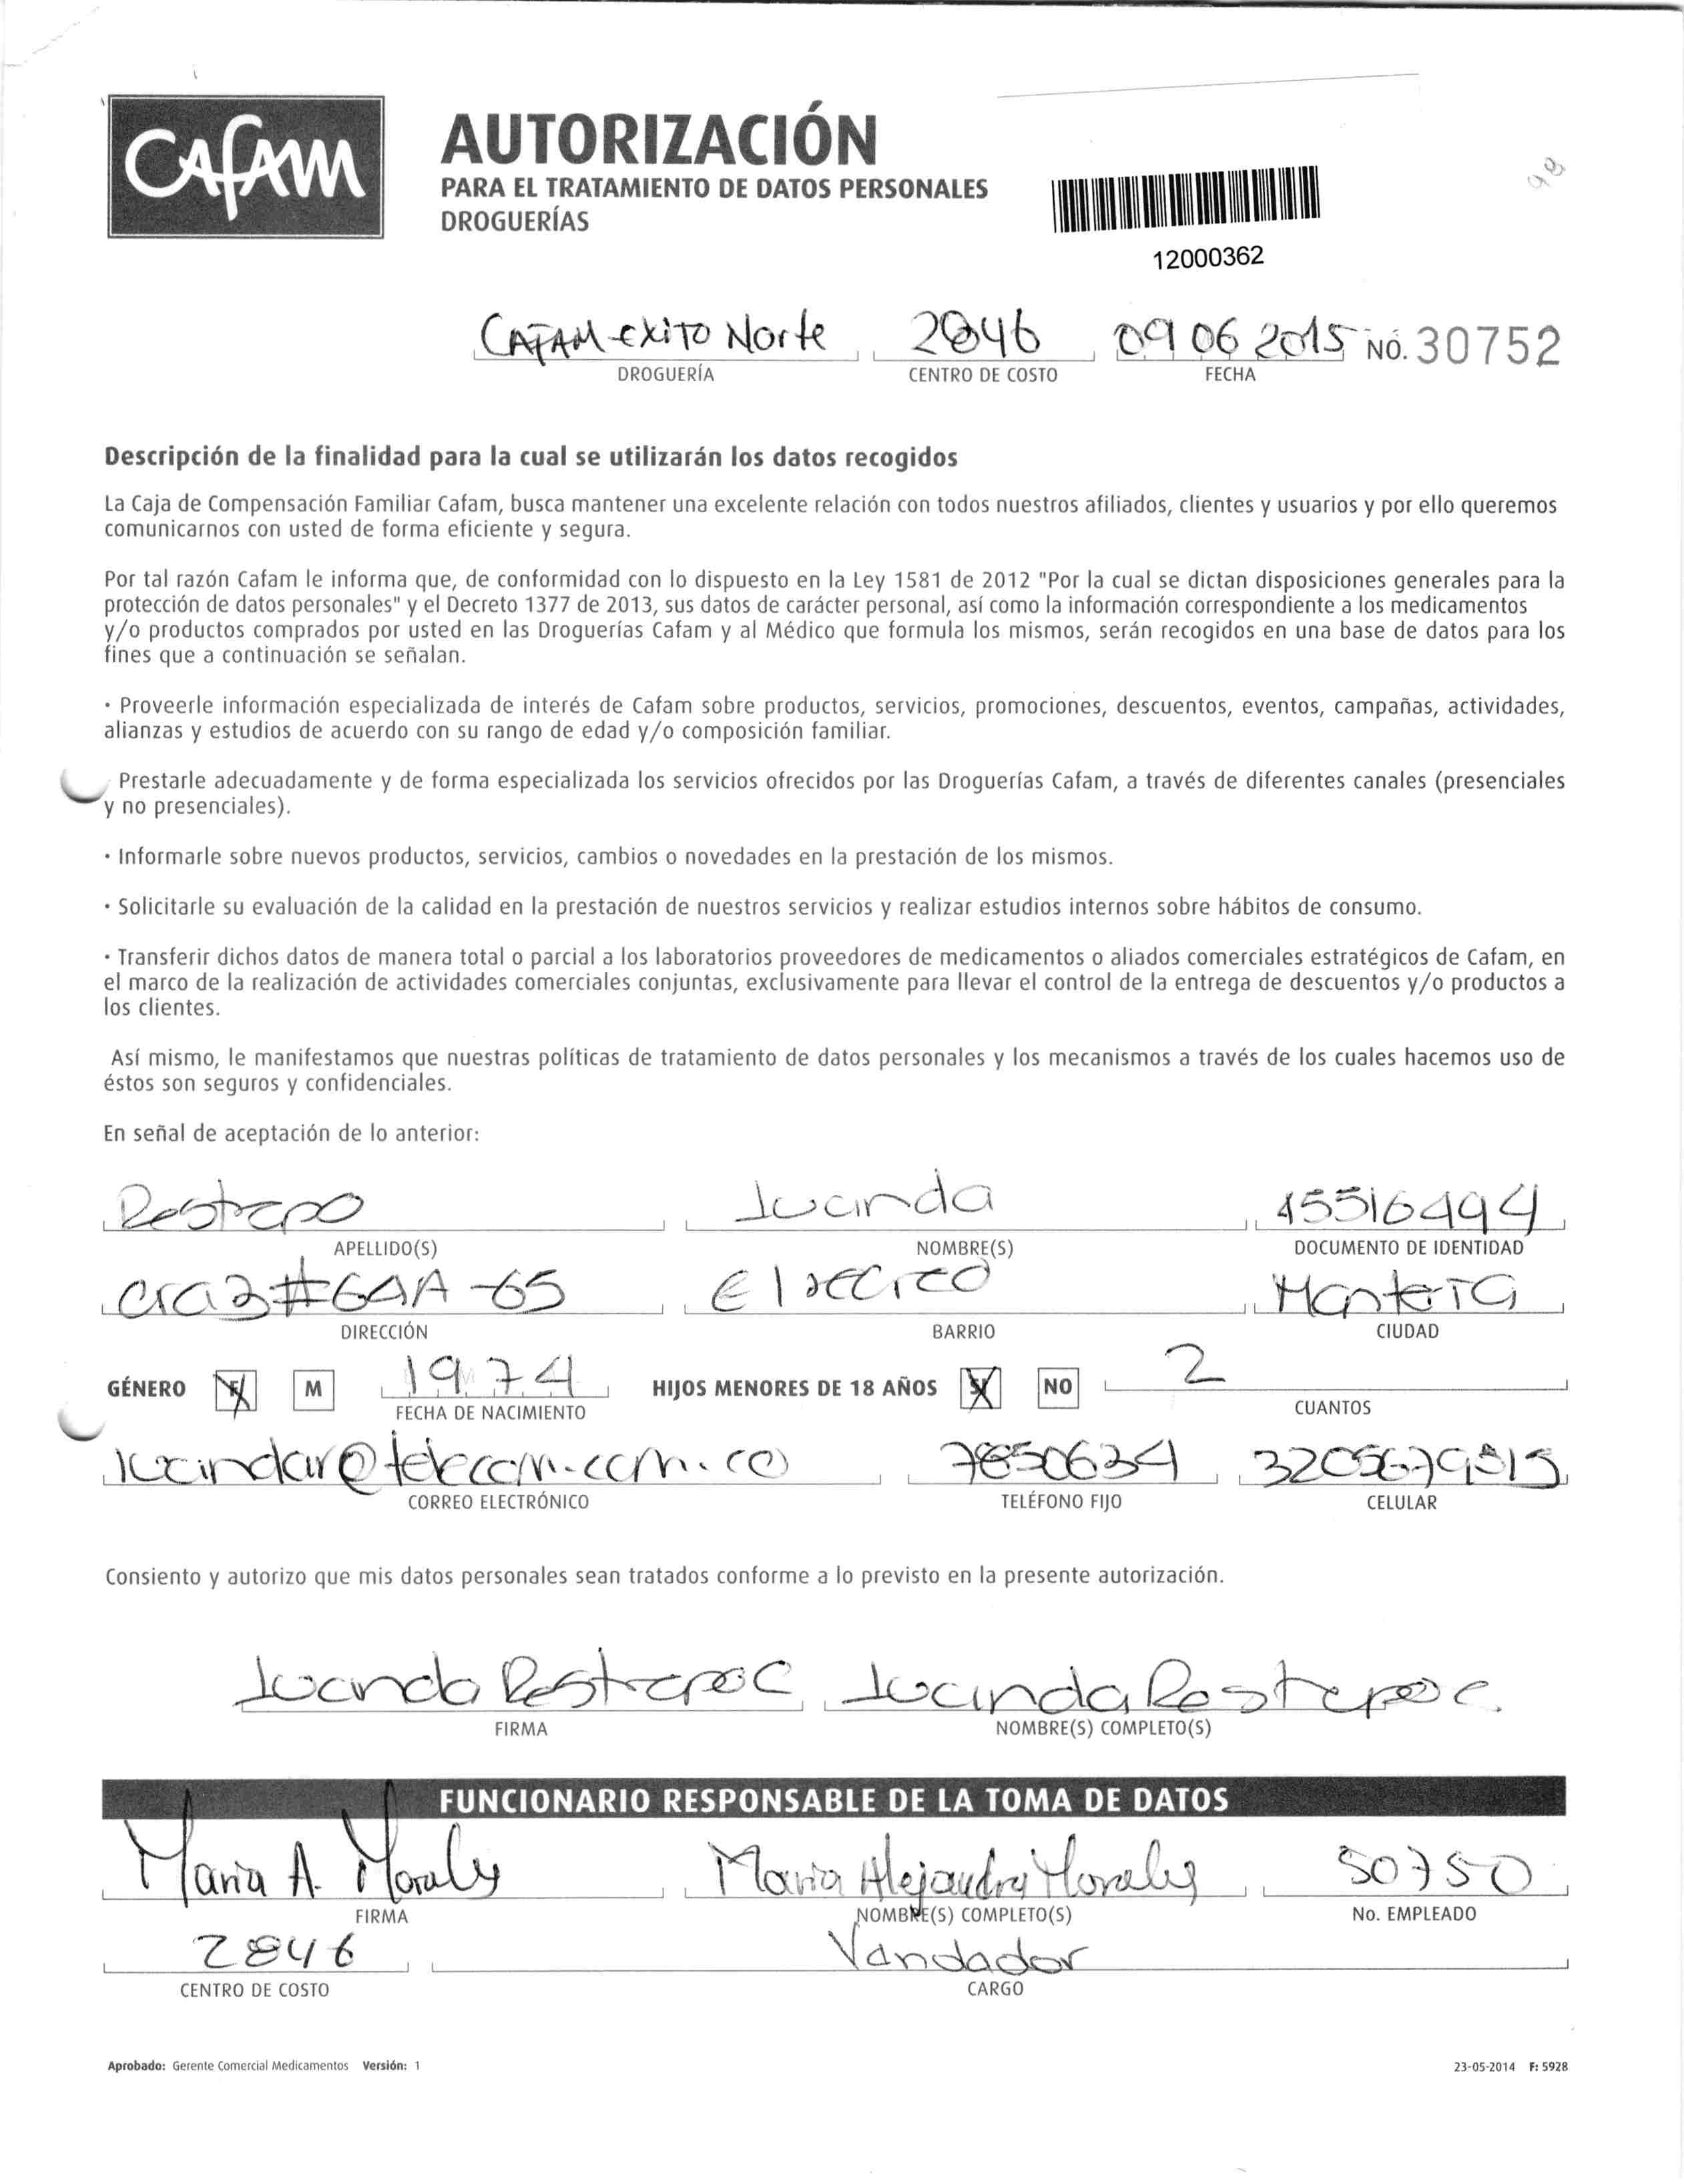 CAFAM
AUTORIZACIÓN
PARA EL TRATAMIENTO DE DATOS PERSONALES
DROGUERÍAS
98
12000362
CAFAM exito Norte 2846 09 06 2015 NO. 30752
DROGUERÍA CENTRO DE COSTO FECHA
Descripción de la finalidad para la cual se utilizarán los datos recogidos
La Caja de Compensación Familiar Cafam, busca mantener una excelente relación con todos nuestros afiliados, clientes y usuarios y por ello queremos
comunicarnos con usted de forma eficiente y segura.
Por tal razón Cafam le informa que, de conformidad con lo dispuesto en la Ley 1581 de 2012 "Por la cual se dictan disposiciones generales para la
protección de datos personales" y el Decreto 1377 de 2013, sus datos de carácter personal, así como la información correspondiente a los medicamentos
y/o productos comprados por usted en las Droguerías Cafam y al Médico que formula los mismos, serán recogidos en una base de datos para los
fines que a continuación se señalan.
· Proveerle información especializada de interés de Cafam sobre productos, servicios, promociones, descuentos, eventos, campañas, actividades,
alianzas y estudios de acuerdo con su rango de edad y/o composición familiar.
· Prestarle adecuadamente y de forma especializada los servicios ofrecidos por las Droguerías Cafam, a través de diferentes canales (presenciales
y no presenciales).
· Informarle sobre nuevos productos, servicios, cambios o novedades en la prestación de los mismos.
· Solicitarle su evaluación de la calidad en la prestación de nuestros servicios y realizar estudios internos sobre hábitos de consumo.
· Transferir dichos datos de manera total o parcial a los laboratorios proveedores de medicamentos o aliados comerciales estratégicos de Cafam, en
el marco de la realización de actividades comerciales conjuntas, exclusivamente para llevar el control de la entrega de descuentos y/o productos a
los clientes.
Así mismo, le manifestamos que nuestras políticas de tratamiento de datos personales y los mecanismos a través de los cuales hacemos uso de
éstos son seguros y confidenciales.
En señal de aceptación de lo anterior:
Restrepo Lucinda
APELLIDO(S) NOMBRE(S) DOCUMENTO DE IDENTIDAD
Cra 3 #64A-65 El recreo Monteria
DIRECCIÓN BARRIO CIUDAD
GÉNERO F M 1974 HIJOS MENORES DE 18 AÑOS SI NO 2
FECHA DE NACIMIENTO CUANTOS
lucindar@telecom.com.co 7850634
CORREO ELECTRÓNICO TELÉFONO FIJO CELULAR
Consiento y autorizo que mis datos personales sean tratados conforme a lo previsto en la presente autorización.
Lucinda Restrepo C Lucinda Restrepo C.
FIRMA NOMBRE(S) COMPLETO(S)
FUNCIONARIO RESPONSABLE DE LA TOMA DE DATOS
Maria A. Morales Maria Alejandra Morales 50750
FIRMA NOMBRE(S) COMPLETO(S) No. EMPLEADO
2846 Vendedor
CENTRO DE COSTO CARGO
Aprobado: Gerente Comercial Medicamentos Versión: 1 23-05-2014 F: 5928